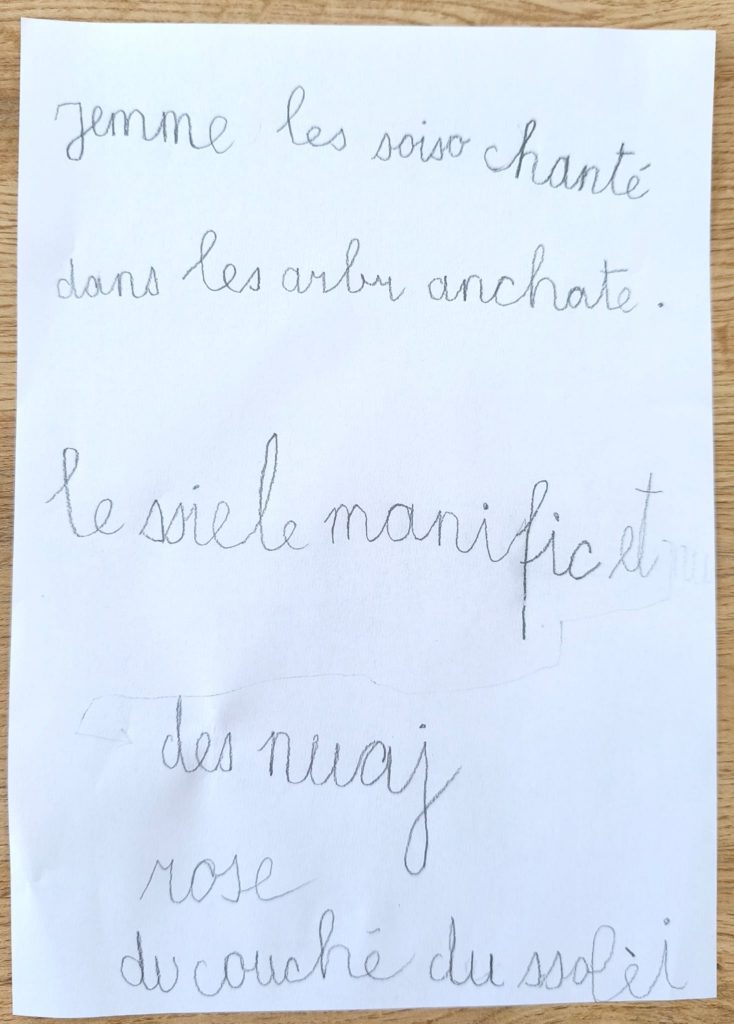 jemme les soiso chanté
dans les arbr anchate.
le ssiele manific et
des nuaj
rose
du couché du ssolèi